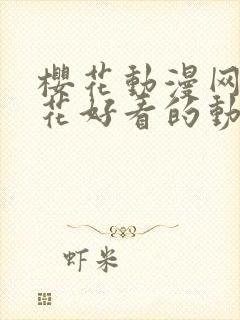 櫻花動漫网
花好看的動
虾米